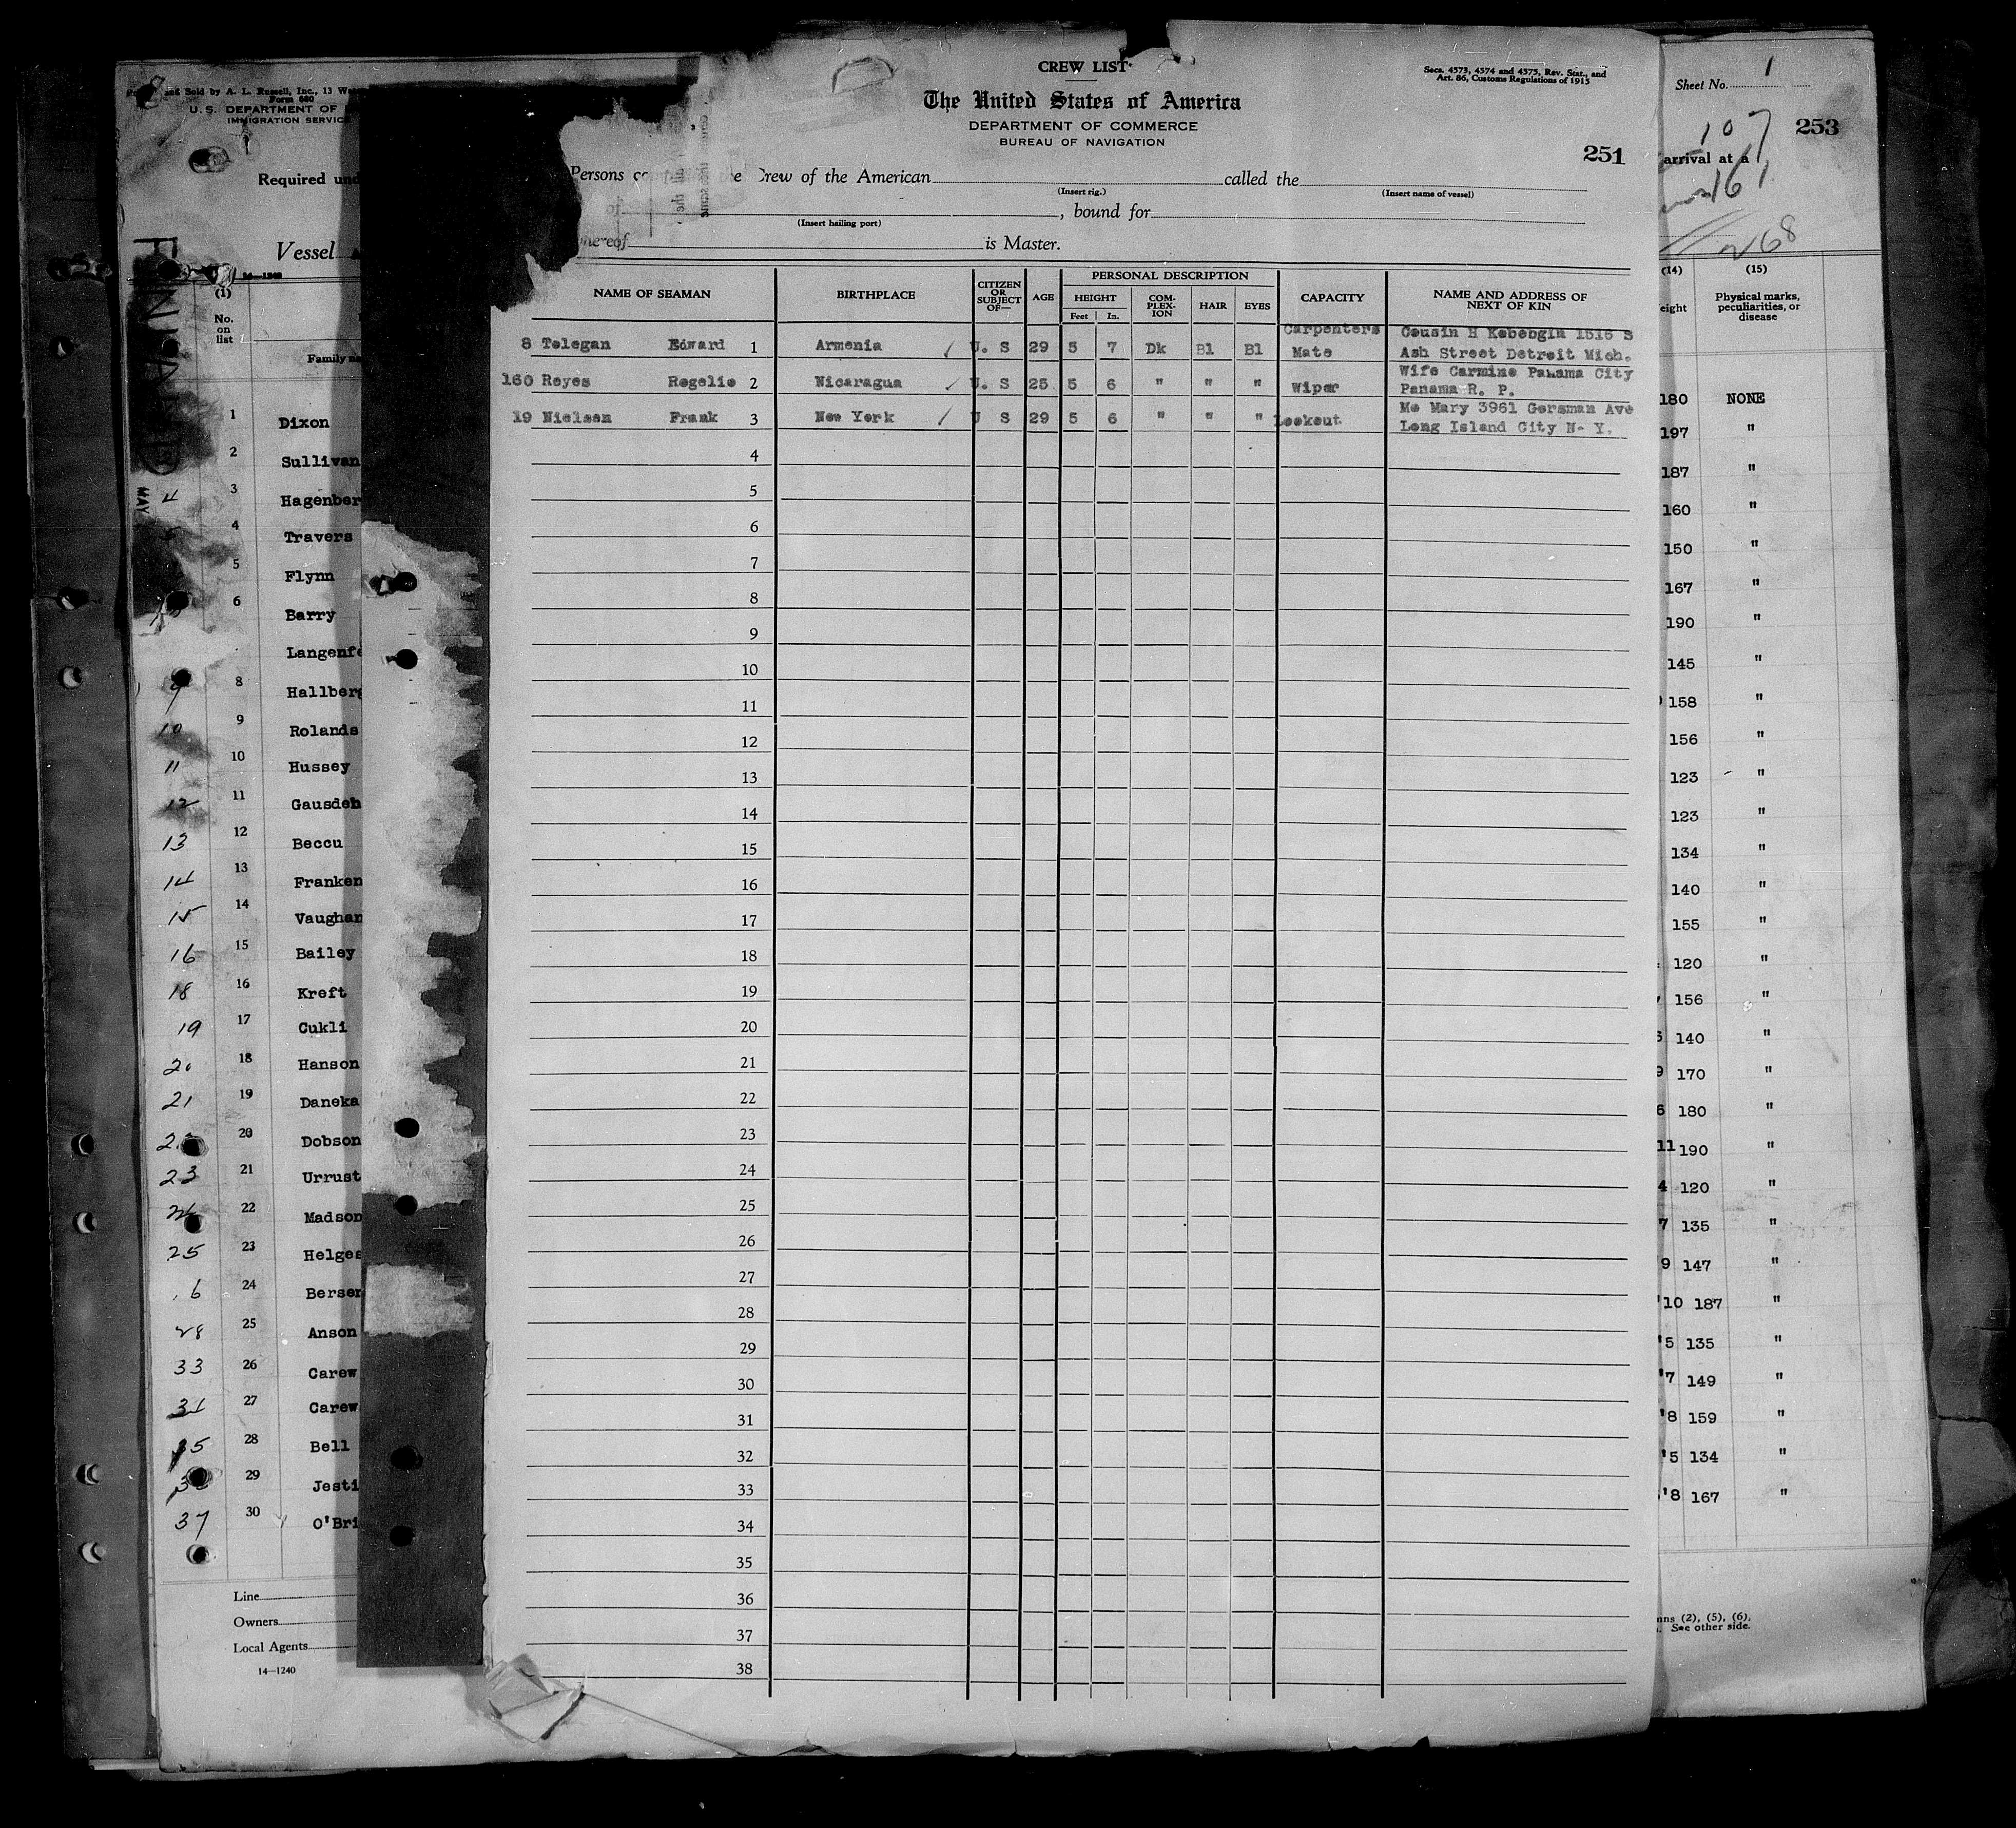 and Sold by A. L. Russell, Inc., 13
Form 680
U. S. DEPARTMENT OF
IMMIGRATION SERVICE
Required und
Vessel
14—1240
(1)
No.
on
list
Family na
MAY
1 Dixon
4 2 Sullivan
3 Hagenber
4 Travers
5 Flynn
6 Barry
Langenfe
9 8 Hallberg
10 9 Rolands
11 10 Hussey
12 11 Gausdeh
13 12 Beccu
14 13 Franken
15 14 Vaughan
16 15 Bailey
18 16 Kreft
19 17 Cukli
20 18 Hanson
21 19 Daneka
20 Dobson
23 21 Urrust
22 Madson
25 23 Helges
6 24 Berser
28 25 Anson
33 26 Carew
27 Carew
35 28 Bell
29 Jesti
37 30 O'Bri
Line
Owners
Local Agents
14—1240
CREW LIST
Secs. 4573, 4574 and 4575, Rev. Stat., and
Art. 86, Customs Regulations of 1915
The United States of America
DEPARTMENT OF COMMERCE
BUREAU OF NAVIGATION
251
Persons co he Crew of the American called the
(Insert rig.) (Insert name of vessel)
, bound for
(Insert hailing port)
whereof is Master.
NAME OF SEAMAN BIRTHPLACE CITIZEN OR SUBJECT OF— AGE PERSONAL DESCRIPTION CAPACITY NAME AND ADDRESS OF NEXT OF KIN
HEIGHT COM-PLEX-ION HAIR EYES
Feet In.
8 Telegan Edward 1 Armenia U. S 29 5 7 Dk Bl Bl Carpenters Mate Cousin H Kebebgin 1516 S
Ash Street Detroit Mich.
160 Reyes Regelio 2 Nicaragua U. S 25 5 6 " " " Wiper Wife Carmine Panama City
Panama R. P.
19 Nielsen Frank 3 New York U S 29 5 6 " " " Lookout Mo Mary 3961 Gersman Ave
Long Island City N- Y.
4
5
6
7
8
9
10
11
12
13
14
15
16
17
18
19
20
21
22
23
24
25
26
27
28
29
30
31
32
33
34
35
36
37
38
Sheet No. 1
107
253
arrival at a
161
268
(14) (15)
eight Physical marks,
peculiarities, or
disease
180 NONE
197 "
187 "
160 "
150 "
167 "
190 "
145 "
158 "
156 "
123 "
123 "
134 "
140 "
155 "
120 "
156 "
140 "
9 170 "
6 180 "
11 190 "
4 120 "
7 135 "
9 147 "
'10 187 "
'5 135 "
'7 149 "
'8 159 "
'5 134 "
'8 167 "
mns (2), (5), (6).
See other side.